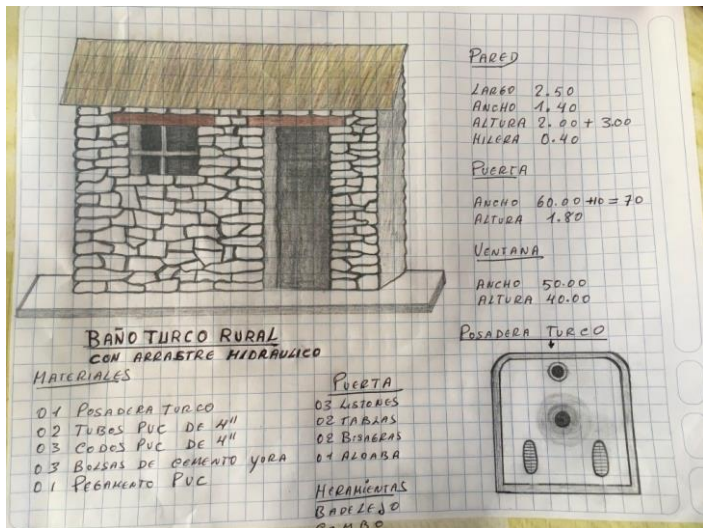 PARED
LARGO 2.50
ANCHO 1.40
ALTURA 2.00 + 3.00
HILERA 0.40
PUERTA
ANCHO 60.00 +10 = 70
ALTURA 1.80
VENTANA
ANCHO 50.00
ALTURA 40.00
POSADERA TURCO
BAÑO TURCO RURAL
CON ARRASTRE HIDRAULICO
MATERIALES
01 POSADERA TURCO
02 TUBOS PVC DE 4"
03 CODOS PVC DE 4"
03 BOLSAS DE CEMENTO YURA
01 PEGAMENTO PVC
PUERTA
03 LISTONES
02 TABLAS
02 BISAGRAS
01 ALDABA
HERAMIENTAS
BADELEJO